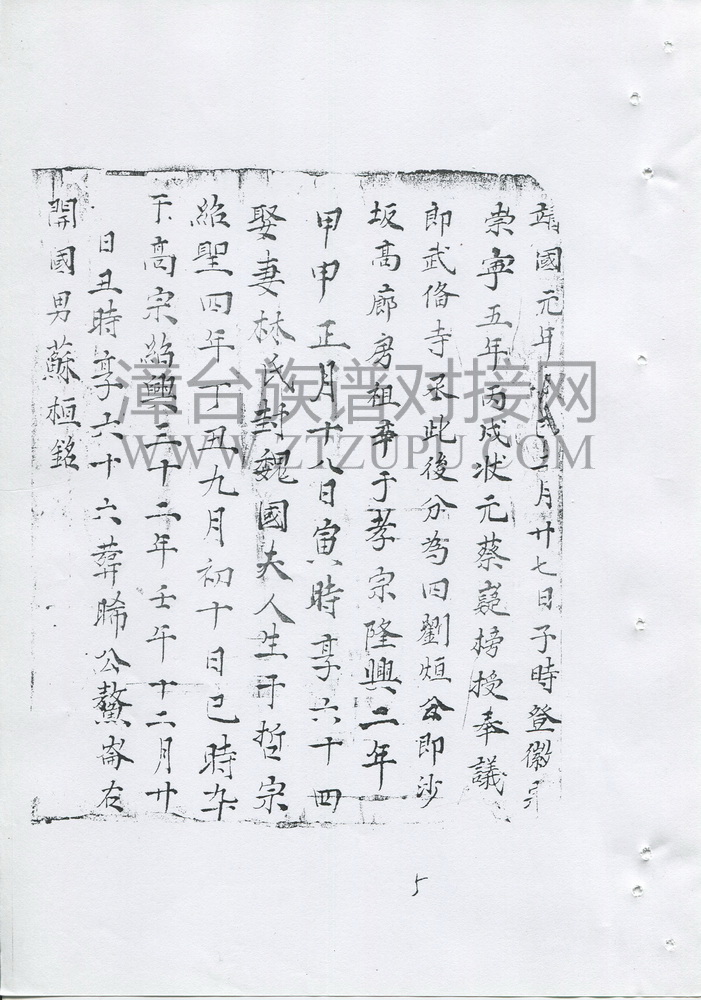 靖國元年 月廿七日子時登徽宗
崇寧五年丙戌状元蔡嶷榜授奉議
即武偹寺丞此後分為四劉烜公即沙
坂高廊房祖卒于孝宗隆興二年
甲申正月十八日寅時享六十四
娶妻林氏封魏國夫人生于哲宗
紹聖四年丁丑九月初十日巳時卒
于高宗紹興三十二年壬午十二月廿
日丑時享六十六葬晞公鰲崙右
開國男蘇桓銘
漳台族谱对接网
WWW.ZTZUPU.COM
5